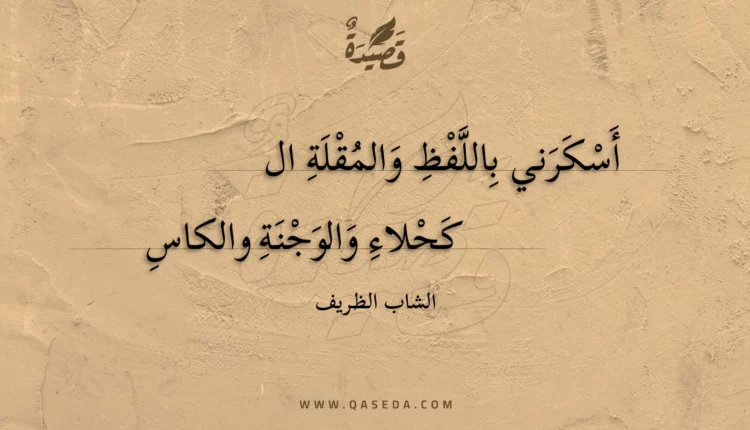 قَصِيدَةٌ
أَسْكَرَني بِاللَّفْظِ وَالمُقْلَةِ ال
كَحْلاءِ وَالوَجْنَةِ والكاسِ
الشاب الظريف
WWW.QASEDA.COM